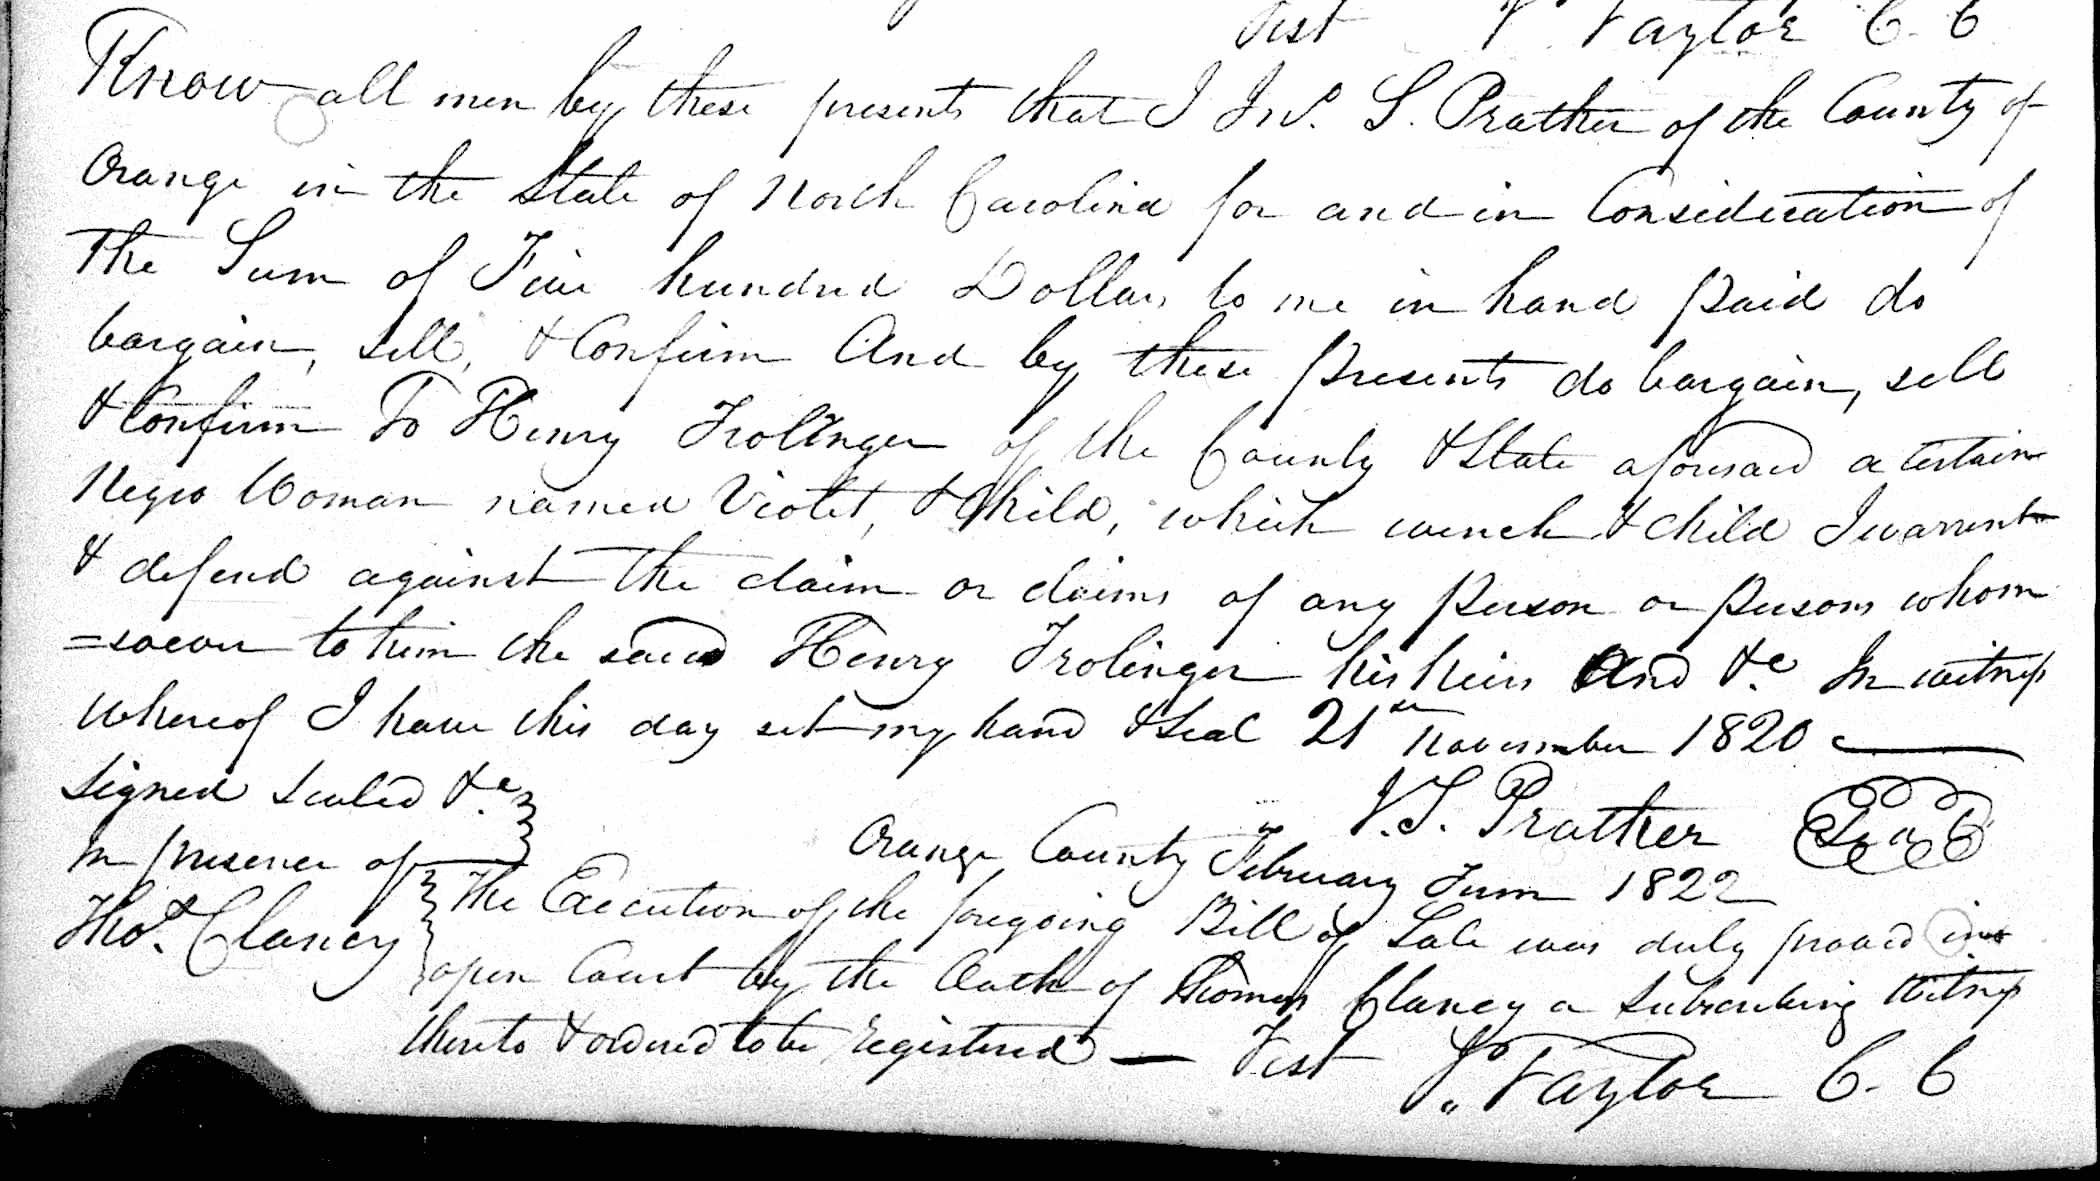 Test J. Taylor C. C
Know all men by these presents that I Jno. S. Prather of the County of
Orange in the State of North Carolina for and in Consideration of
The Sum of Five hundred Dollars to me in hand paid do
bargain, sell, & Confirm And by these presents do bargain, sell
& Confirm To Henry Trolinger of the County & State aforesaid a certain
Negro Woman named Violet, & Child, which wench & child I warrent
& defend against the claim or claims of any person or persons whom
=soever to him the said Henry Trolinger his heirs And &c. In witness
whereof I have this day set my hand & Seal 21st November 1820
Signed Sealed &c.
In presence of
Thos. Clancy
J. S. Prather Seal
Orange County February Term 1822
The Execution of the foregoing Bill of Sale was duly proved in
open Court by the Oath of Thomas Clancy a Subscribing Witness
thereto & ordered to be registered — Test J. Taylor C. C